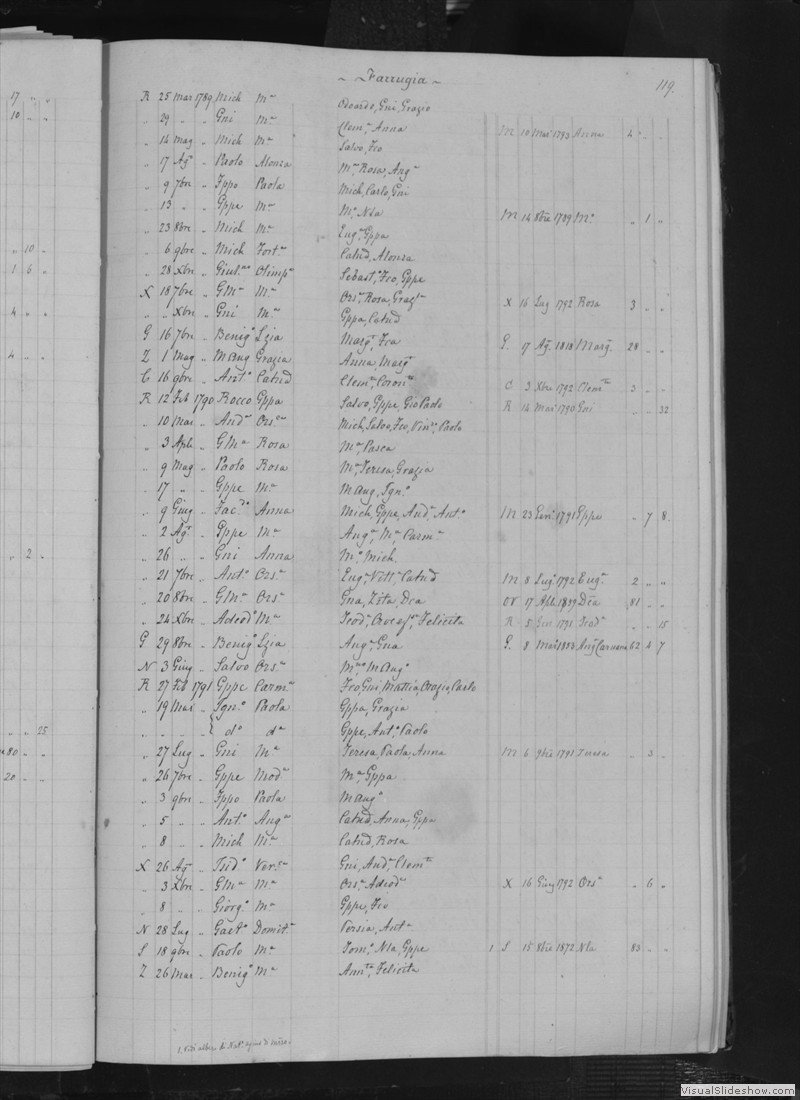 17 " "
10 " "
" 10 "
1 6 "
4 " "
4 " "
" 2 "
" " 25
80 " "
20 " "
~ Farrugia ~
119.
R 25 Mar 1789 Mich Mª Odoardo, Gni, Grazio
" 29 " " Gni Mª Clemª Anna M 10 Mar 1793 Anna 4 " "
" 14 Mag " Mich Mª Salvo, Fco
" 17 Agº " Paolo Alonza Mª Rosa, Angª
" 9 7bre " Fppo Paola Mich, Carlo, Gni
" 13 " " Gppe Mª Mª Nza M 14 8bre 1789 Mª " 1 "
" 23 8bre " Mich Mª Eugª Gppa
" 6 9bre " Mich Fortª Catnd, Alonza
" 28 Xbre " Giulº Olimpª Sebastº Fco, Gppe
X 18 7bre " GMª Mª Orsª Rosa, Grazª X 16 Lug 1792 Rosa 3 " "
" " Xbre " Gni Mª Gppa, Catnd
G 16 7bre " Benigº Lzia Margª Fca G. 17 Agº 1818 Margª 28 " "
Z 1 Mag " MAng Grazia Anna, Margª
C 16 9bre " Antº Catnd Clemª, Coronª C 3 Xbre 1792 Clemª 3 " "
R 12 Feb 1790 Rocco Gppa Salvo, Gppe, Gio Paolo R 14 Mar 1790 Gni " " 32
" 10 Mar " Andª Orsª Mich, Salvo, Fco, Vinº, Paolo
" 3 Aple " GMª Rosa Mª Pasca
" 9 Mag " Paolo Rosa Mª Teresa, Grazia
" 17 " " Gppe Mª MAng, Ignº
" 9 Giug " Anna Mich, Gppe, Andª, Antº M 23 Gen 1791 Gppe " 7 8
" 2 Agº " Gppe Mª Angª, Mª, Carmª
" 26 " " Gni Anna Mª Mich
" 21 7bre " Antº Orsª Eugª Vittª Catnd M 8 Lugº 1792 Eugª 2 " "
" 20 8bre " GMª Orsª Gna, Zita, Dca 17 Aple Dca 81 " "
" 24 Xbre " Adeodº Mª Teodª Felicita R 5 Gen 1791 Teodª " " 15
G 29 8bre " Benigº Lzia Angª, Gna G. 8 Mar Angª Caruana 62 4 7
N 3 Giug " Salvo Orsª Mª, MAngª
R 27 Feb 1791 Gppe Carmª Fco, Gni, Mattia, Orazio, Carlo
" 19 Mar " Ignº Paola Gppa, Grazia
" " " " dº dª Gppe, Antº Paolo
" 27 Lug " Gni Mª Teresa, Paola, Anna M 6 9bre 1791 Teresa " 3 "
" 26 7bre " Gppe Modª Mª Gppa
" 3 9bre " Fppo Paola MAngº
" 5 " " Antº Angª Catnd, Anna, Gppa
" 8 " " Mich Mª Catnd, Rosa
X 26 Agº " Isidº Verª Gni, Andª, Clemª
" 3 Xbre " GMª Mª Orsª Adeodª X 16 Giug 1792 Orsª " 6 "
" 8 " " Giorgº Mª Gppe, Fco
N 28 Lug " Gaetº Domitª Persia, Antª
S 18 9bre " Paolo Mª Tomº Nla, Gppe 1 S 18 8bre 1872 Nla 83 " "
Z 26 Mar " Benigº Mª Annª, Felicita
VisualSlideshow.com